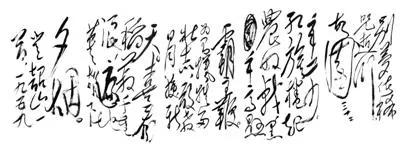 别梦依稀
咒逝
故园三十二
红旗卷起
农奴戟黑
手高悬
霸主鞭
为有牺牲多
壮志敢教
日月换新
天喜看
稻菽千重
浪遍
英雄下
夕烟
一九五九